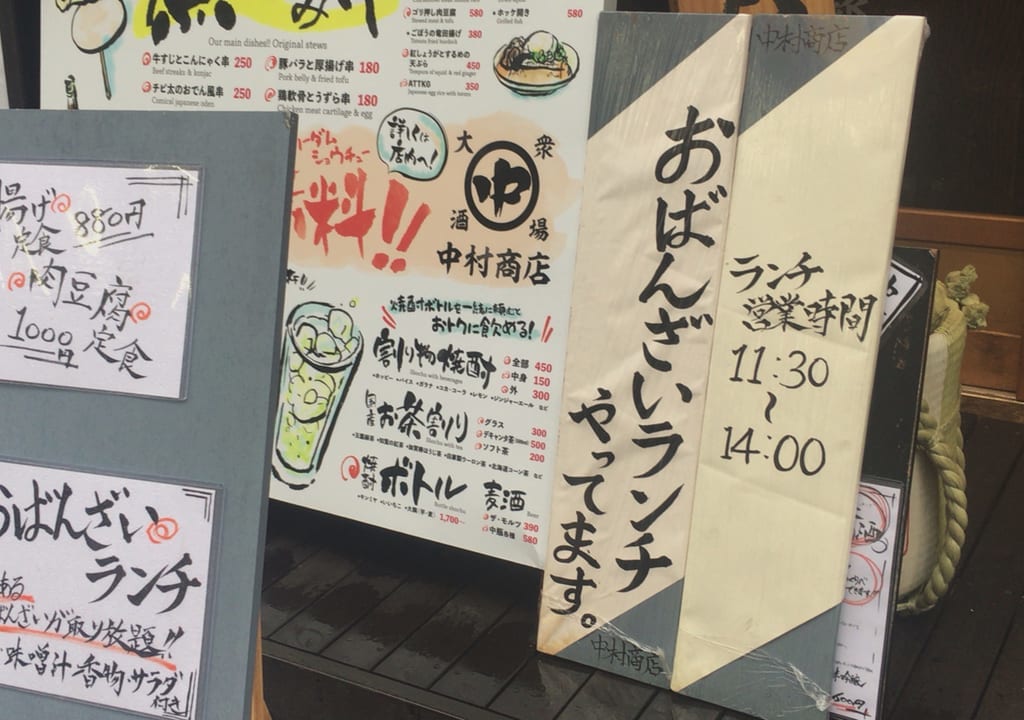 Our main dishes!! Original stews
牛すじとこんにゃく串 250
Beef streaks & konjac
チビ太のおでん風串 250
Comical japanese oden
豚バラと厚揚げ串 180
Pork belly & fried tofu
鶏軟骨とうずら串 180
Chicken meat cartilage & egg
ゴリ押し肉豆腐 580
Stewed meat & tofu
ごぼうの竜田揚げ 380
紅しょうがとするめの
天ぷら 450
Tempura of squid & red ginger
ATTKO 350
Japanese egg rice with tororo
ホッケ開き 580
Grilled fish
ショウチュー
料!!
詳しくは
店内へ!
大衆
酒場
中
中村商店
焼酎ボトルを一緒に頼むと
おトクに飲める!
割り物焼酎
Shochu with beverages
全部 450
中身 150
外 300
国産
お茶割り
Shochu with tea
グラス 300
デキャンタ茶(500ml) 500
ソフト茶 200
焼酎
ボトル
Bottle shochu
1,700~
麦酒
Beer
ザ・モルツ 390
中瓶各種 580
揚げ
定食
880円
肉豆腐
定食
1000円
ばんざい
ランチ
ある
ばんざいが取り放題!!
味噌汁 香物 サラダ
付き
おばんざいランチ
やってます。
中村商店
中村商店
ランチ
営業時間
11:30
~
14:00